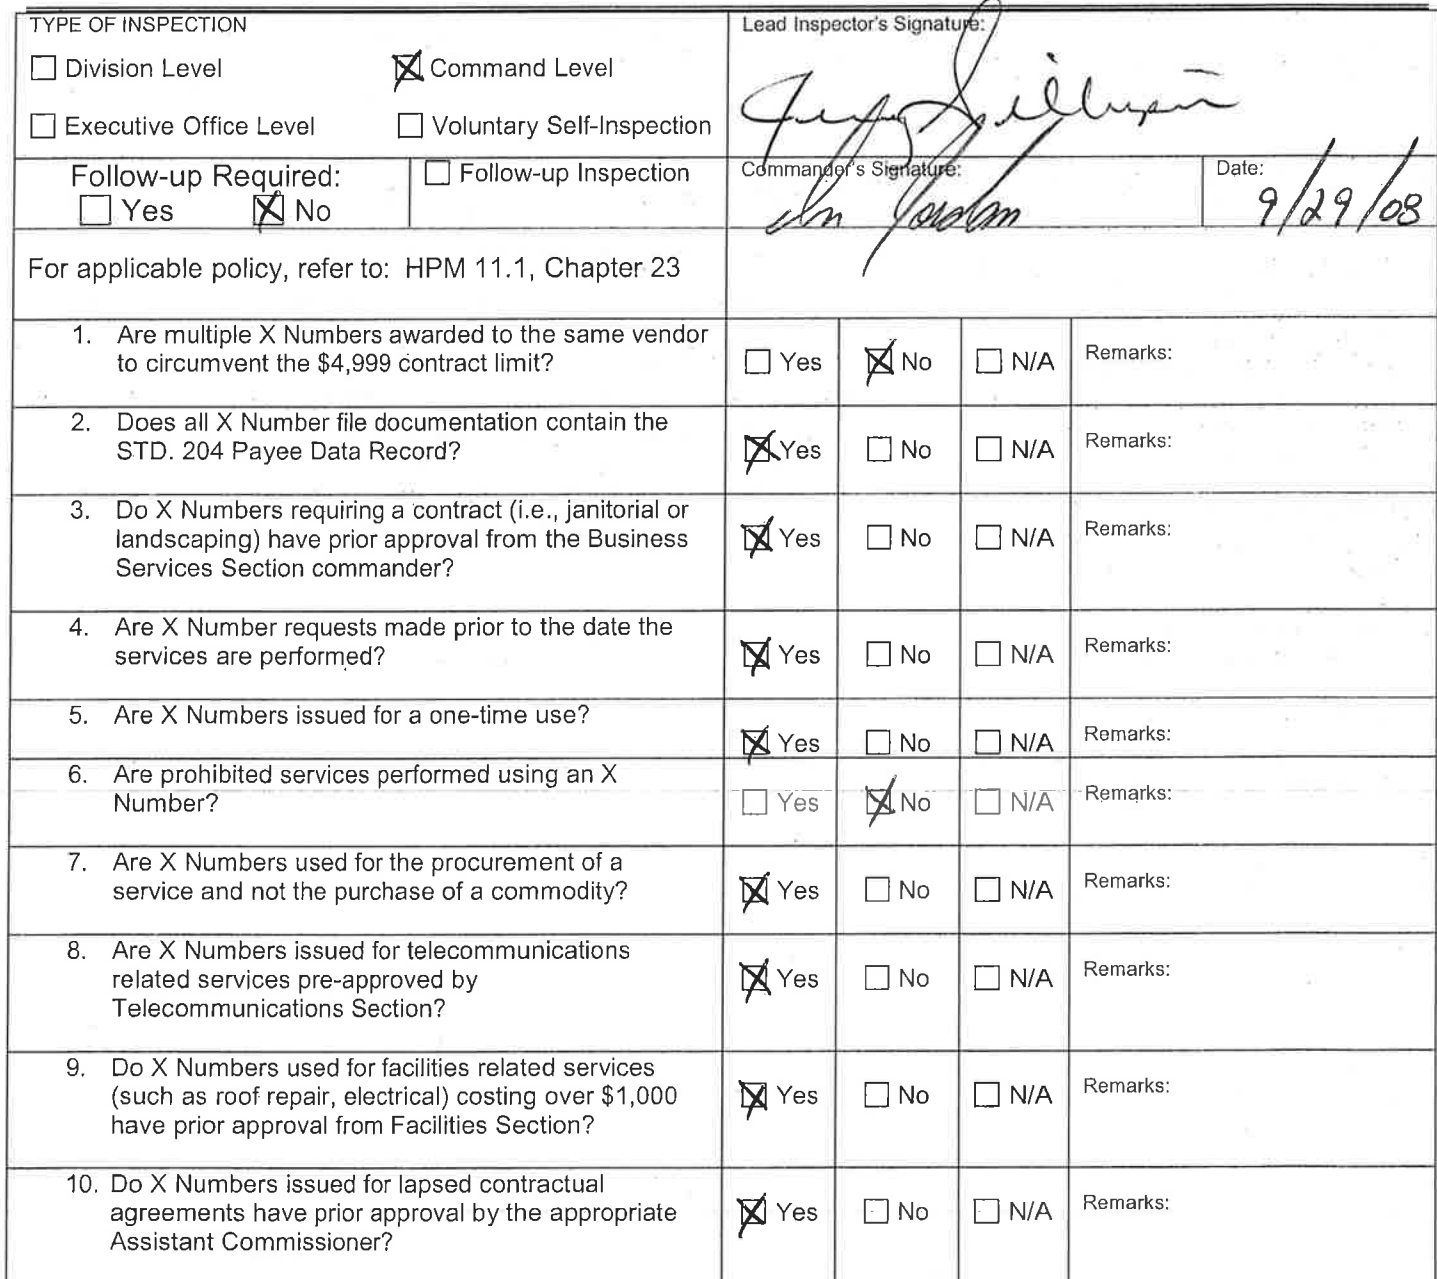 TYPE OF INSPECTION
Division Level
Command Level
Executive Office Level
Voluntary Self-Inspection
Lead Inspector's Signature:
Follow-up Required:
Yes No
Follow-up Inspection
Commander's Signature:
Date:
9/29/08
For applicable policy, refer to: HPM 11.1, Chapter 23
1. Are multiple X Numbers awarded to the same vendor
to circumvent the $4,999 contract limit?
Yes No N/A Remarks:
2. Does all X Number file documentation contain the
STD. 204 Payee Data Record?
Yes No N/A Remarks:
3. Do X Numbers requiring a contract (i.e., janitorial or
landscaping) have prior approval from the Business
Services Section commander?
Yes No N/A Remarks:
4. Are X Number requests made prior to the date the
services are performed?
Yes No N/A Remarks:
5. Are X Numbers issued for a one-time use?
Yes No N/A Remarks:
6. Are prohibited services performed using an X
Number?
Yes No N/A Remarks:
7. Are X Numbers used for the procurement of a
service and not the purchase of a commodity?
Yes No N/A Remarks:
8. Are X Numbers issued for telecommunications
related services pre-approved by
Telecommunications Section?
Yes No N/A Remarks:
9. Do X Numbers used for facilities related services
(such as roof repair, electrical) costing over $1,000
have prior approval from Facilities Section?
Yes No N/A Remarks:
10. Do X Numbers issued for lapsed contractual
agreements have prior approval by the appropriate
Assistant Commissioner?
Yes No N/A Remarks: